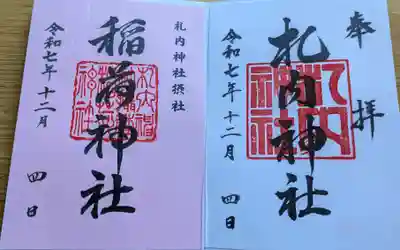 奉拝
札内神社
令和七年十二月四日
札内神社摂社
稲荷神社
令和七年十二月四日